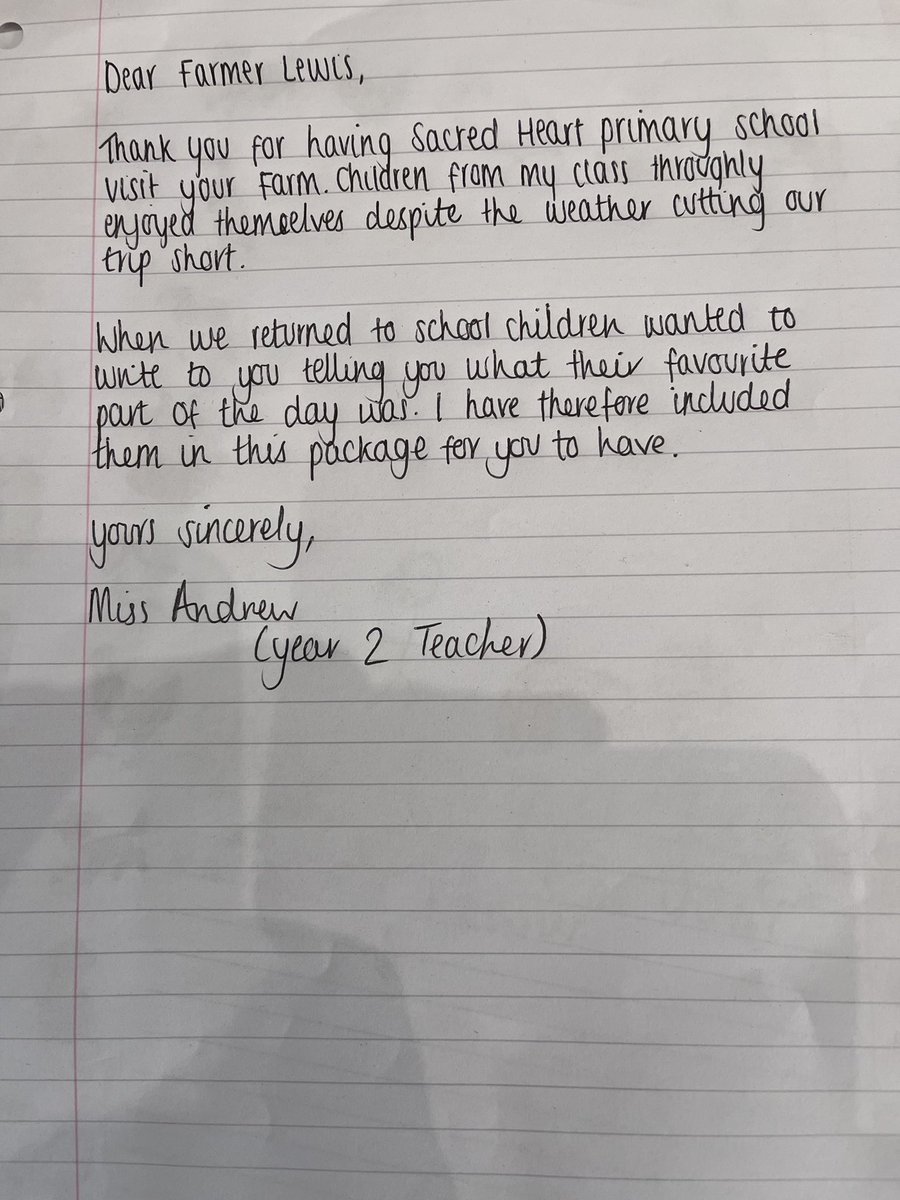 Dear Farmer Lewis,
Thank you for having Sacred Heart primary school
visit your Farm. Children from my class throughly
enjoyed themselves despite the weather cutting our
trip short.
When we returned to school children wanted to
write to you telling you what their favourite
part of the day was. I have therefore included
them in this package for you to have.
yours sincerely,
Miss Andrew
(year 2 Teacher)